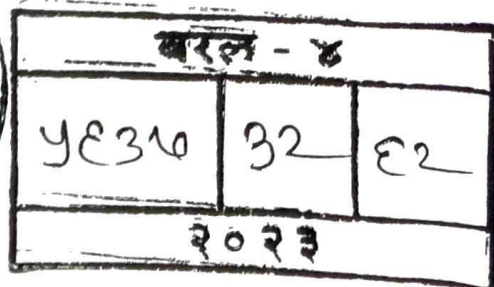 बरल - ४
५६३७ ३२ ६२
२०२३